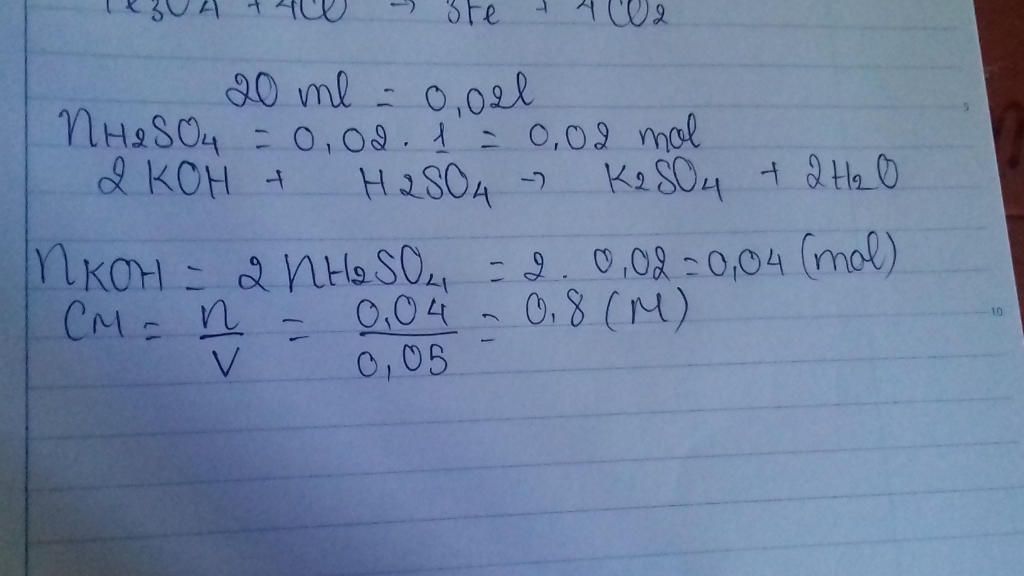 Fe3O4 + 4CO → 3Fe + 4CO2
20 ml = 0,02l
nH2SO4 = 0,02 . 1 = 0,02 mol
2 KOH + H2SO4 → K2SO4 + 2H2O
nKOH = 2 nH2SO4 = 2 . 0,02 = 0,04 (mol)
CM = n/V = 0,04/0,05 = 0,8 (M)
10